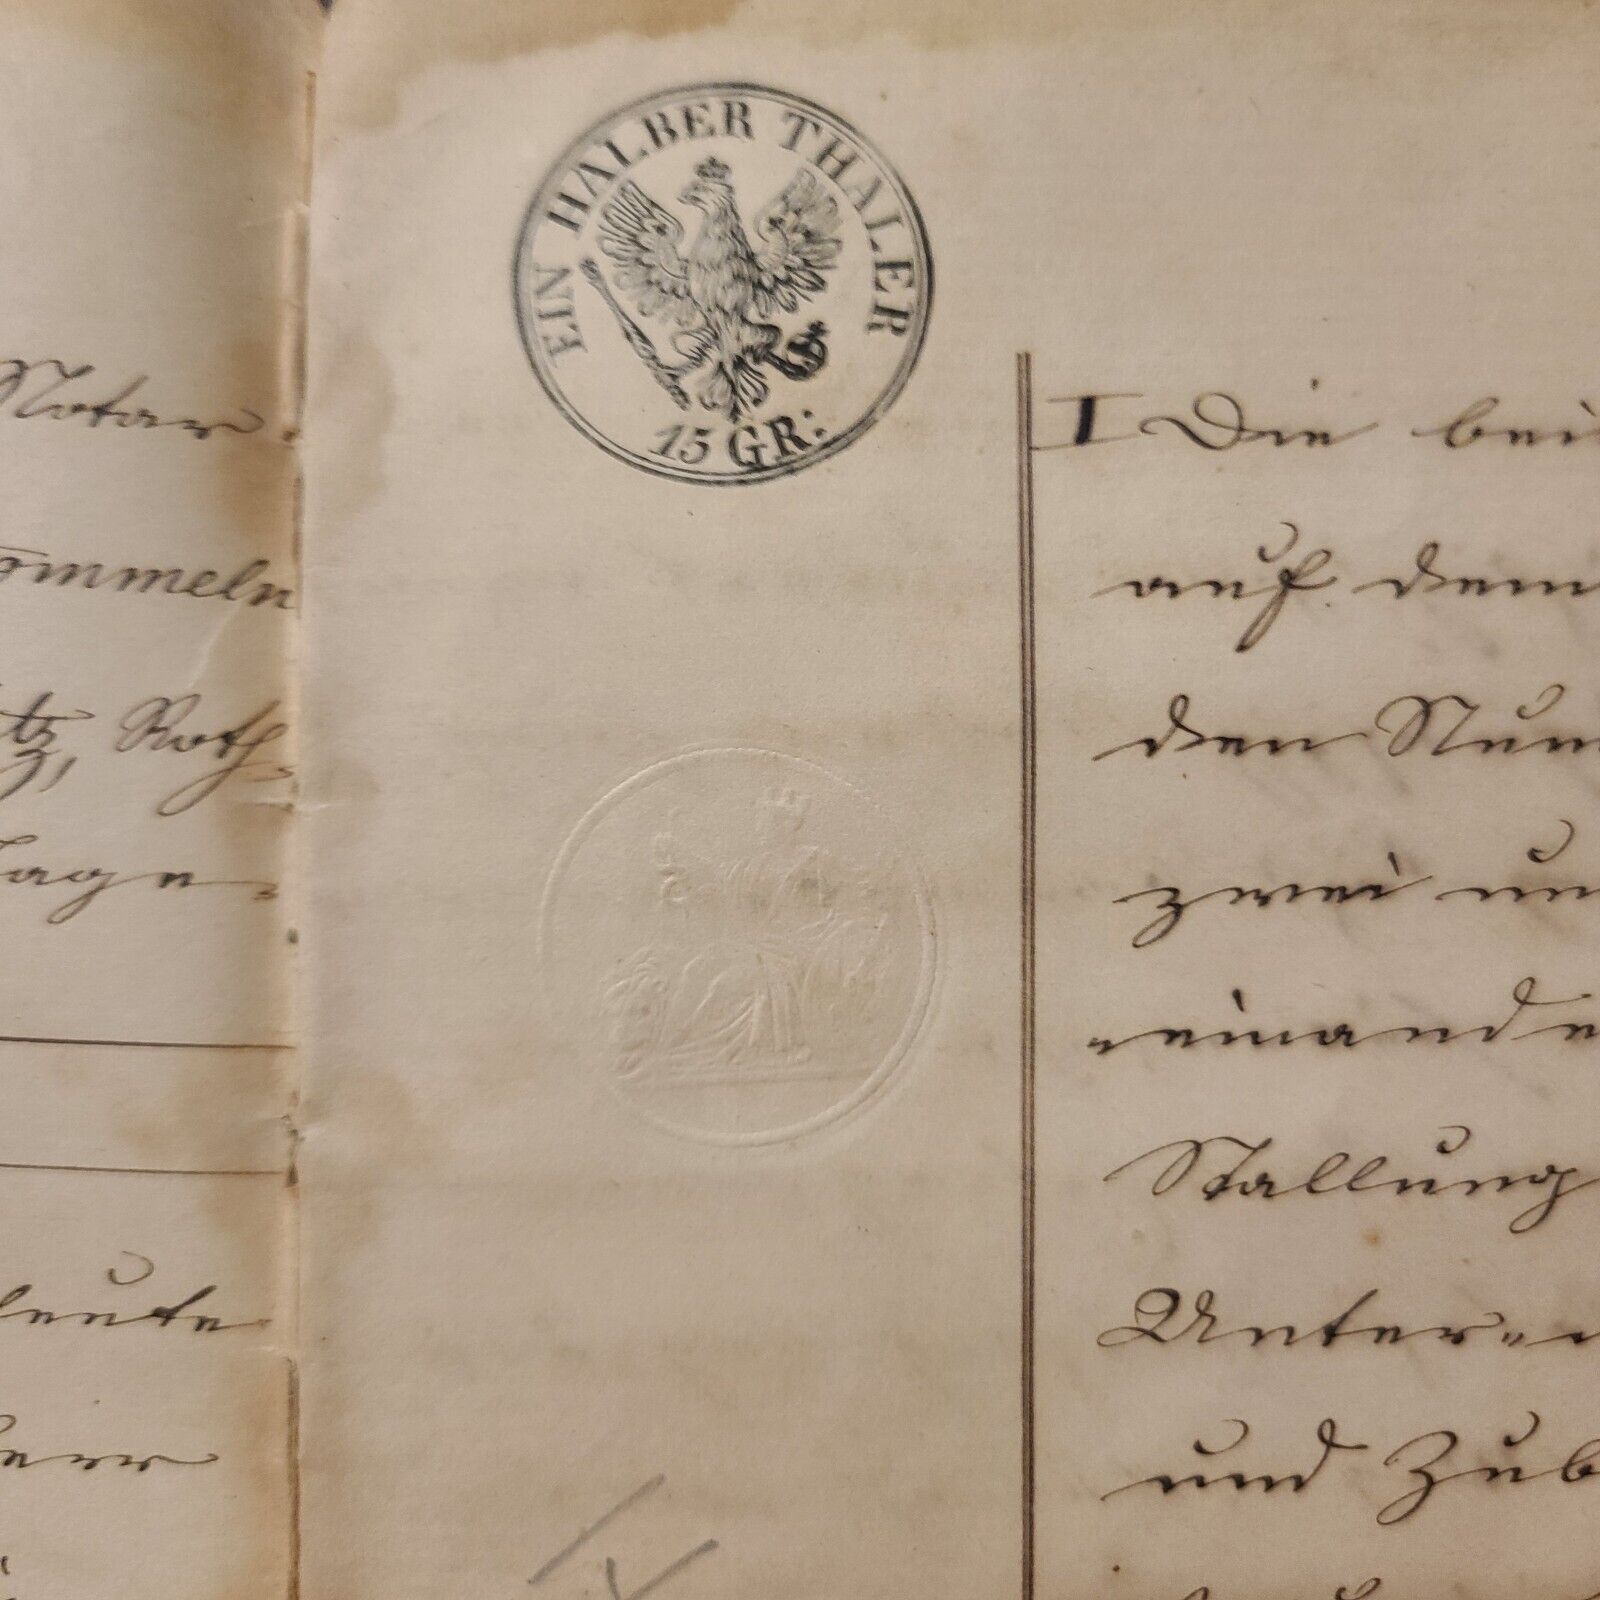 EIN HALBER THALER
15 GR:
Notar
ommeln
tz, Roth-
age
leute
err
I Die bei
auf dem
den Num
zwei un
einande
Stallung
Unter-
und Zub